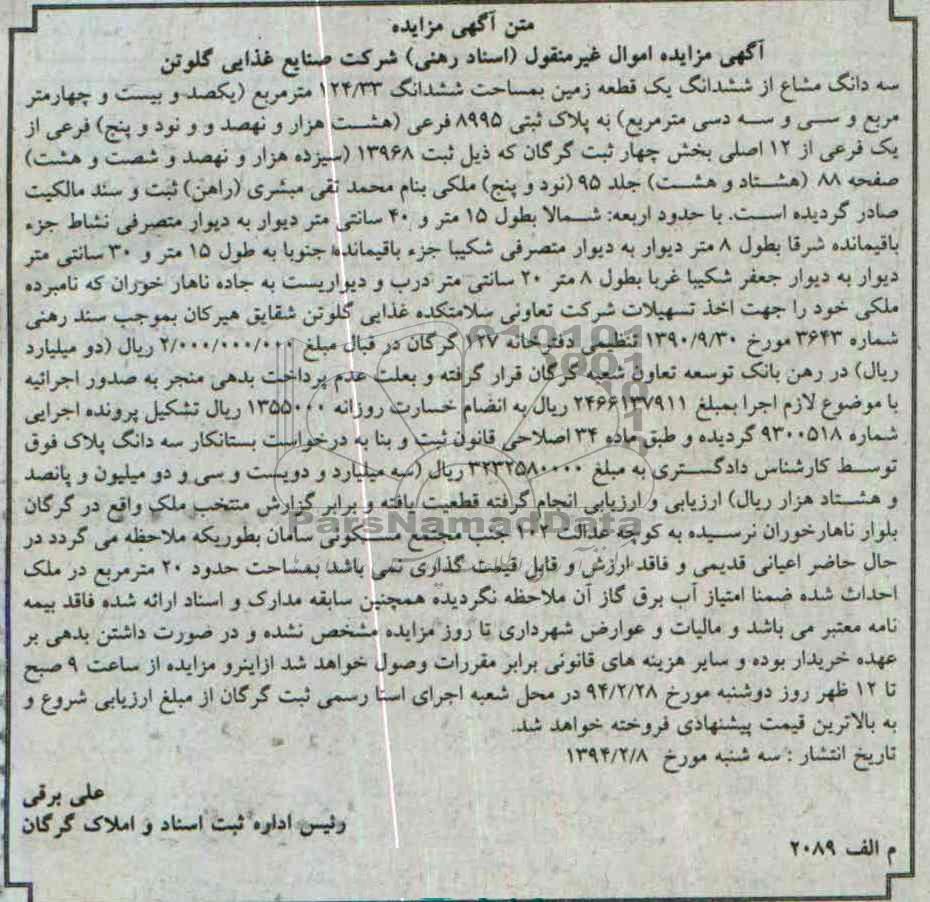 متن آگهی مزایده
آگهی مزایده اموال غیرمنقول (اسناد رهنی) شرکت صنایع غذایی گلوتن
سه دانگ مشاع از ششدانگ یک قطعه زمین بمساحت ششدانگ ۱۲۴/۳۳ مترمربع (یکصد و بیست و چهارمتر
مربع و سی و سه دسی مترمربع) به پلاک ثبتی ۸۹۹۵ فرعی (هشت هزار و نهصد و و نود و پنج) فرعی از
یک فرعی از ۱۲ اصلی بخش چهار ثبت گرگان که ذیل ثبت ۱۳۹۶۸ (سیزده هزار و نهصد و شصت و هشت)
صفحه ۸۸ (هشتاد و هشت) جلد ۹۵ (نود و پنج) ملکی بنام محمد تقی مبشری (راهن) ثبت و سند مالکیت
صادر گردیده است. با حدود اربعه: شمالا بطول ۱۵ متر و ۴۰ سانتی متر دیوار به دیوار متصرفی نشاط جزء
باقیمانده شرقا بطول ۸ متر دیوار به دیوار متصرفی شکیبا جزء باقیمانده جنوبا به طول ۱۵ متر و ۳۰ سانتی متر
دیوار به دیوار جعفر شکیبا غربا بطول ۸ متر ۲۰ سانتی متر درب و دیواریست به جاده ناهار خوران که نامبرده
ملکی خود را جهت اخذ تسهیلات شرکت تعاونی سلامتکده غذایی گلوتن شقایق هیرکان بموجب سند رهنی
شماره ۳۶۴۳ مورخ ۱۳۹۰/۹/۳۰ تنظیمی دفترخانه ۱۲۷ گرگان در قبال مبلغ ۲/۰۰۰/۰۰۰/۰۰۰ ریال (دو میلیارد
ریال) در رهن بانک توسعه تعاون شعبه گرگان قرار گرفته و بعلت عدم پرداخت بدهی منجر به صدور اجرائیه
با موضوع لازم اجرا بمبلغ ۲۴۶۶۱۳۷۹۱۱ ریال به انضام خسارت روزانه ۱۳۵۵۰۰۰ ریال تشکیل پرونده اجرایی
شماره ۹۳۰۰۵۱۸ گردیده و طبق ماده ۳۴ اصلاحی قانون ثبت و بنا به درخواست بستانکار سه دانگ پلاک فوق
توسط کارشناس دادگستری به مبلغ ۳۲۳۲۵۸۰۰۰۰ ریال (سه میلیارد و دویست و سی و دو میلیون و پانصد
و هشتاد هزار ریال) ارزیابی و ارزیابی انجام گرفته قطعیت یافته و برابر گزارش منتخب ملک واقع در گرگان
بلوار ناهارخوران نرسیده به کوچه عدالت ۱۰۲ جنب مجتمع مسکونی سامان بطوریکه ملاحظه می گردد در
حال حاضر اعیانی قدیمی و فاقد ارزش و قابل قیمت گذاری نمی باشد بمساحت حدود ۲۰ مترمربع در ملک
احداث شده ضمنا امتیاز آب برق گاز آن ملاحظه نگردیده همچنین سابقه مدارک و اسناد ارائه شده فاقد بیمه
نامه معتبر می باشد و مالیات و عوارض شهرداری تا روز مزایده مشخص نشده و در صورت داشتن بدهی بر
عهده خریدار بوده و سایر هزینه های قانونی برابر مقررات وصول خواهد شد ازاینرو مزایده از ساعت ۹ صبح
تا ۱۲ ظهر روز دوشنبه مورخ ۹۴/۲/۲۸ در محل شعبه اجرای اسنا رسمی ثبت گرگان از مبلغ ارزیابی شروع و
به بالاترین قیمت پیشنهادی فروخته خواهد شد.
تاریخ انتشار : سه شنبه مورخ ۱۳۹۴/۲/۸
علی برقی
رئیس اداره ثبت اسناد و املاک گرگان
م الف ۲۰۸۹
ParsNamadData